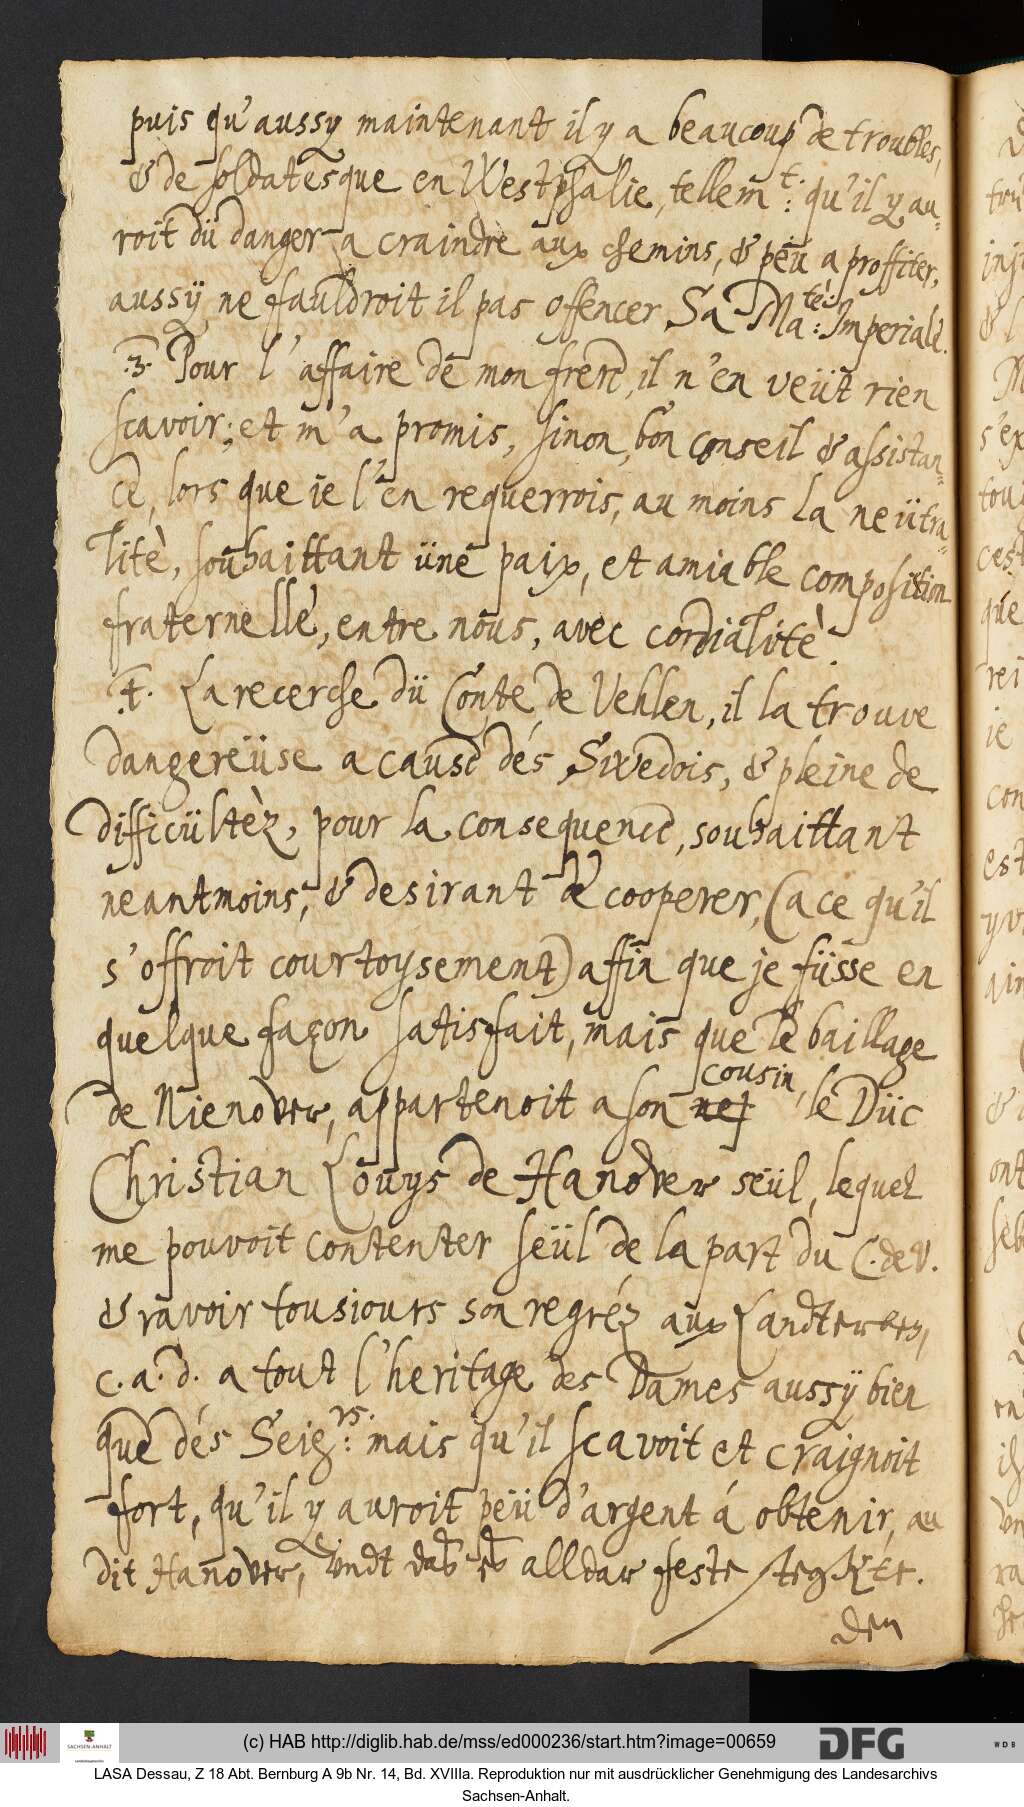 puis qu'aussy maintenant il y a beaucoup de troubles,
& de soldatesque en Westphalie, tellem:t qu'il y au-
roit dü danger a craindre aux chemins, & peü a proffiter,
aussÿ ne fauldroit il pas ofencer Sa Ma:tè Imperiale.
.3. Pour l'affaire de mon frere, il n'en veüt rien
scavoir; et m'a promis, sinon, bon conseil & assistan-
ce, lors que je l'en requerrois, au moins la neütra-
litè, souhaittant üne paix, et amiable composition
fraternelle, entre nous, avec cordialitè.
.4. La recerche dü Conte de Vehlen, il la trouve
dangereüse a cause dés Swedois, & pleine de
difficültèz, pour la consequence, souhaittant
neantmoins, & desirant de cooperer, (a ce qu'il
s'offroit courtoysement) affin que je füsse en
quelque façon satisfait, mais que le baillage
cousin,
de Nienover, appartenoit a son nep le Düc
Christian Louys de Hanover seül, lequel
me pouvoit contenter seül de la part du C. de V.
& ravoir tousiours son regréz aux Landterben,
c. a. d. a tout l'heritage des Dames aussÿ bien
que dés Seig:rs. mais qu'il scavoit et craignoit
fort, qu'il y auroit peü d'argent á obtenir, au
dit Hanover, undt daß es alldar feste stegkte.
den
(c) HAB http://diglib.hab.de/mss/ed000236/start.htm?image=00659
SACHSEN-ANHALT
DFG
WDB
LASA Dessau, Z 18 Abt. Bernburg A 9b Nr. 14, Bd. XVIIIa. Reproduktion nur mit ausdrücklicher Genehmigung des Landesarchivs
Sachsen-Anhalt.